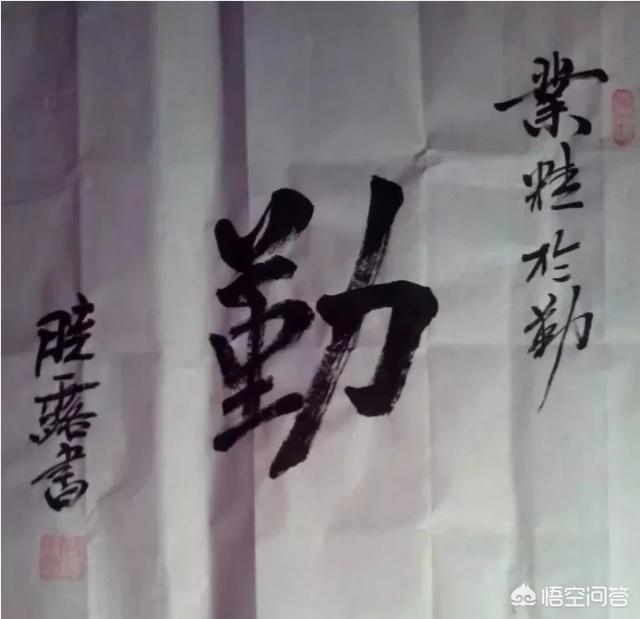 業精於勤
勤
晓露書
悟空问答